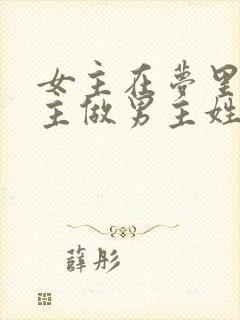 女主在夢里
主做男主姓
薛彤